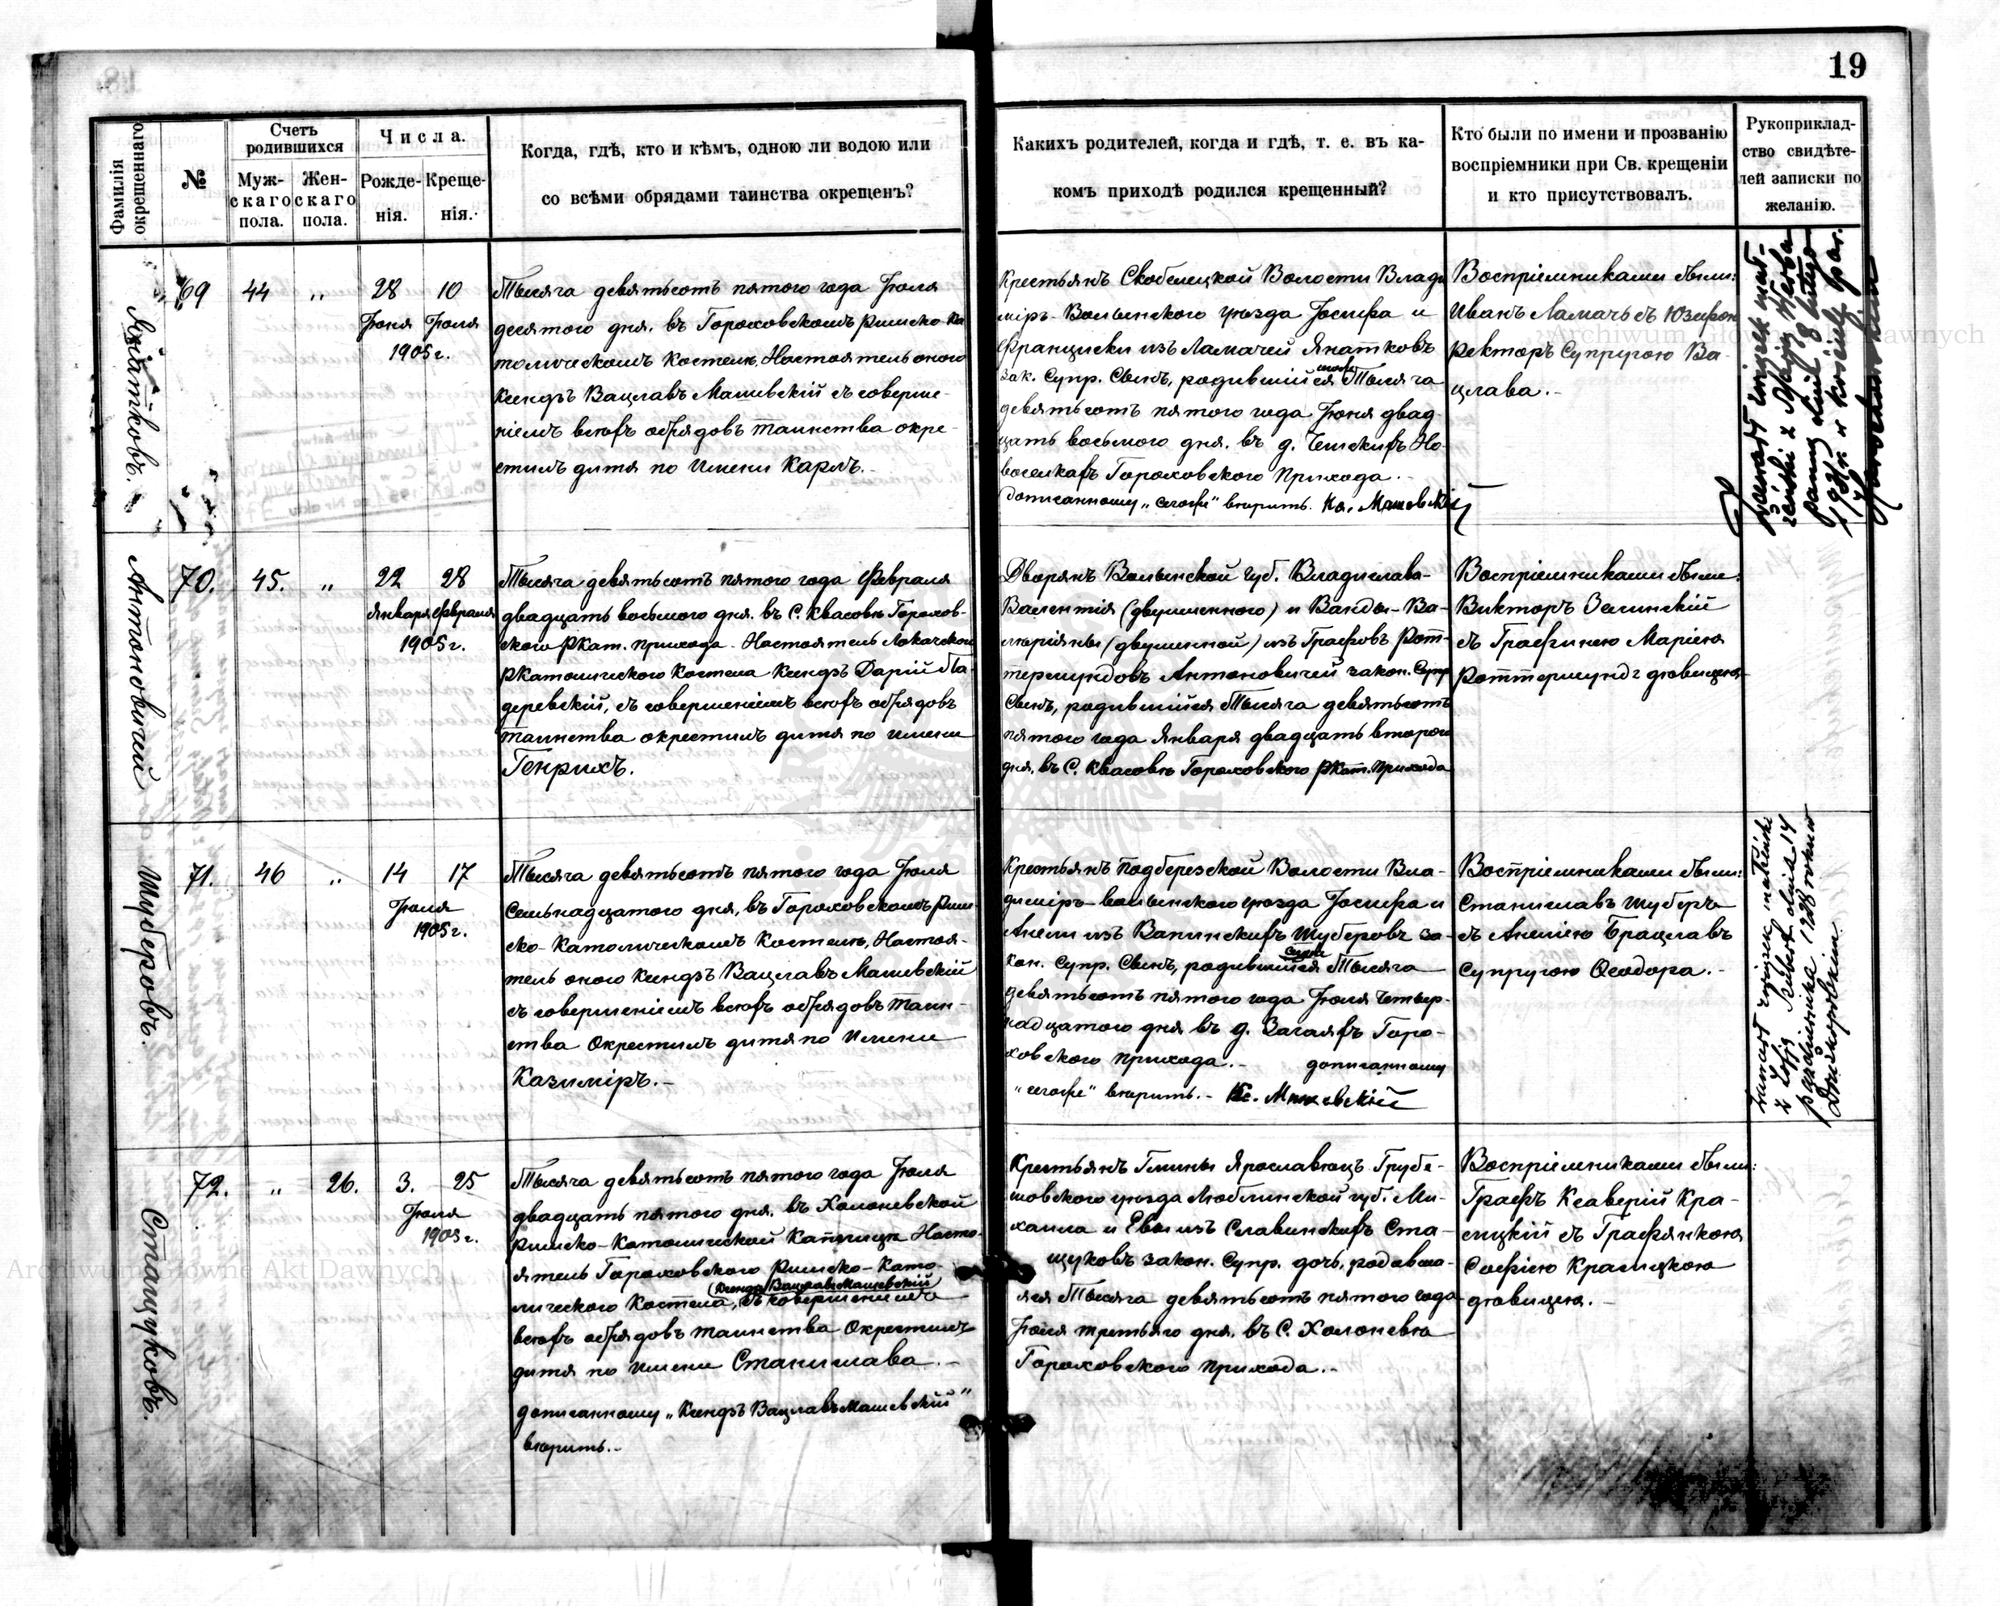 19
Фамилія окрещеннаго.
№
Счетъ родившихся
Мужскаго пола.
Женскаго пола.
Числа.
Рожденія.
Крещенія.
Когда, гдѣ, кто и кѣмъ, одною ли водою или
со всѣми обрядами таинства окрещенъ?
Какихъ родителей, когда и гдѣ, т. е. въ ка-
комъ приходѣ родился крещенный?
Кто были по имени и прозванію
воспріемники при Св. крещеніи
и кто присутствовалъ.
Рукоприклад-
ство свидѣте-
лей записки по
желанію.
69
44
„
28 Іюня
10 Іюля
1905 г.
Тысяча девятьсотъ пятого года Іюля
десятого дня. въ Гороховскомъ Римско-Ка
толическомъ Костелѣ, Настоятель оного
Ксендзъ Вацлавъ Машевскій съ соверше-
ніемъ всѣхъ обрядовъ таинства окре-
стилъ дитя по Имени Карлъ.-
Крестьянъ Скобелецкой Волости Влади
міръ-Волынского уѣзда Іосифа и
Франциски изъ Ламачей Янатковъ
зак. Супр. Сынъ, родившійся Тысяча
девятьсотъ пятого года Іюня двад-
цать восьмого дня. въ д. Чешкихъ Но-
воселкахъ Гороховского Прихода.-
дописанному „сегоже" вѣрить. Кс. Машевскій
Воспріемниками были:
Иванъ Ламачъ съ Юзефою
Ректоръ Супругою Ва-
цлава.-
Антоновичій
70.
45.
„
22 Января
28 Февраля
1905 г.
Тысяча девятьсотъ пятого года Февраля
двадцать восьмого дня. въ С. Квасовѣ Горохов-
ского РКат. прихода. Настоятель Локачского
РКатолического Костела Ксендзъ Дарій Па-
деревскій, съ совершеніемъ всѣхъ обрядовъ
таинства окрестилъ дитя по имени
Генрихъ.
Дворянъ Волынской Губ. Владислава-
Валентія (двуименного) и Ванды-Ва-
леріяны (двуименной) изъ Графовъ Рот-
термундовъ Антоновичей закон. Супр
Сынъ, родившійся Тысяча девятьсотъ
пятого года Января двадцать второго
дня, въ С. Квасовѣ Гороховского РКат. Прихода
Воспріемниками были:
Викторъ Зелинскій
съ Графинею Маріею
Роттермундъ дѣвицею
Шуберовъ.
71.
46
„
14
17
Іюля
1905 г.
Тысяча девятьсотъ пятого года Іюля
Семьнадцатого дня, въ Гороховскомъ Рим-
ско-Католическомъ Костелѣ, Настоя-
тель оного Ксендзъ Вацлавъ Машевскій
съ совершеніемъ всѣхъ обрядовъ Таин-
ства Окрестилъ дитя по Имени
Казиміръ.-
Крестьянъ Подберезской Волости Вла-
диміръ-волынского уѣзда Іосифа и
Анели изъ Вапинскихъ Шуберовъ за-
кон. Супр. Сынъ, родившійся Тысяча
девятьсотъ пятого года Іюля Четыр-
надцатого дня въ д. Загаяхъ Горо-
ховского прихода.- дописанному
„сегоже" вѣрить.- Кс. Машевскій
Воспріемниками были:
Станиславъ Шуберъ
съ Анелею Брацлавъ
Супругою Ѳеодора.-
Стащуковъ.
72.
„
26.
3.
25
Іюля
1905 г.
Тысяча девятьсотъ пятого года Іюля
двадцать пятого дня. въ Холоневской
Римско-Католической Каплицѣ Насто-
ятель Гороховского Римско-Като-
лического Костела, Ксендзъ Вацлавъ Машевскій съ совершеніемъ
всѣхъ обрядовъ таинства Окрестилъ
дитя по Имени Станислава.-
дописанному „Ксендзъ Вацлавъ Машевскій"
вѣрить.-
Крестьянъ Гмины Ярославецъ Грубе-
шовского уѣзда Люблинской губ. Ми-
хаила и Евы изъ Славинскихъ Ста-
щуковъ закон. Супр. дочь, родивша-
яся Тысяча девятьсотъ пятого года
Іюля третьяго дня. въ С. Холоневѣ
Гороховского прихода.-
Воспріемниками были:
Графъ Ксаверій Кра-
сицкій съ Графянкою
Софіею Красицкою
дѣвицею.-
Archiwum Główne Akt Dawnych
Archiwum Główne Akt Dawnych